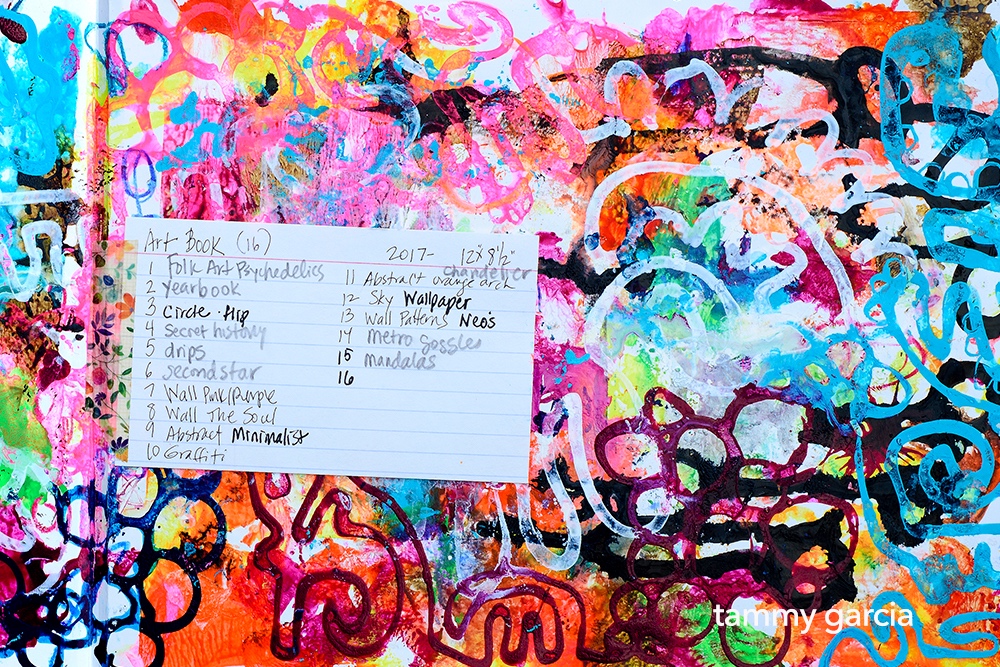 Art Book (16)
2017- 12" x 9½"
1 Folk Art Psychedelics
2 Yearbook
3 Circle · Flip
4 Secret history
5 drips
6 second star
7 Wall Pink/Purple
8 Wall The Soul
9 Abstract Minimalist
10 Graffiti
chandelier
11 Abstract orange arch
12 Sky Wallpaper
13 Wall Patterns Neo's
14 metro
15 mandalas
16
tammy garcia